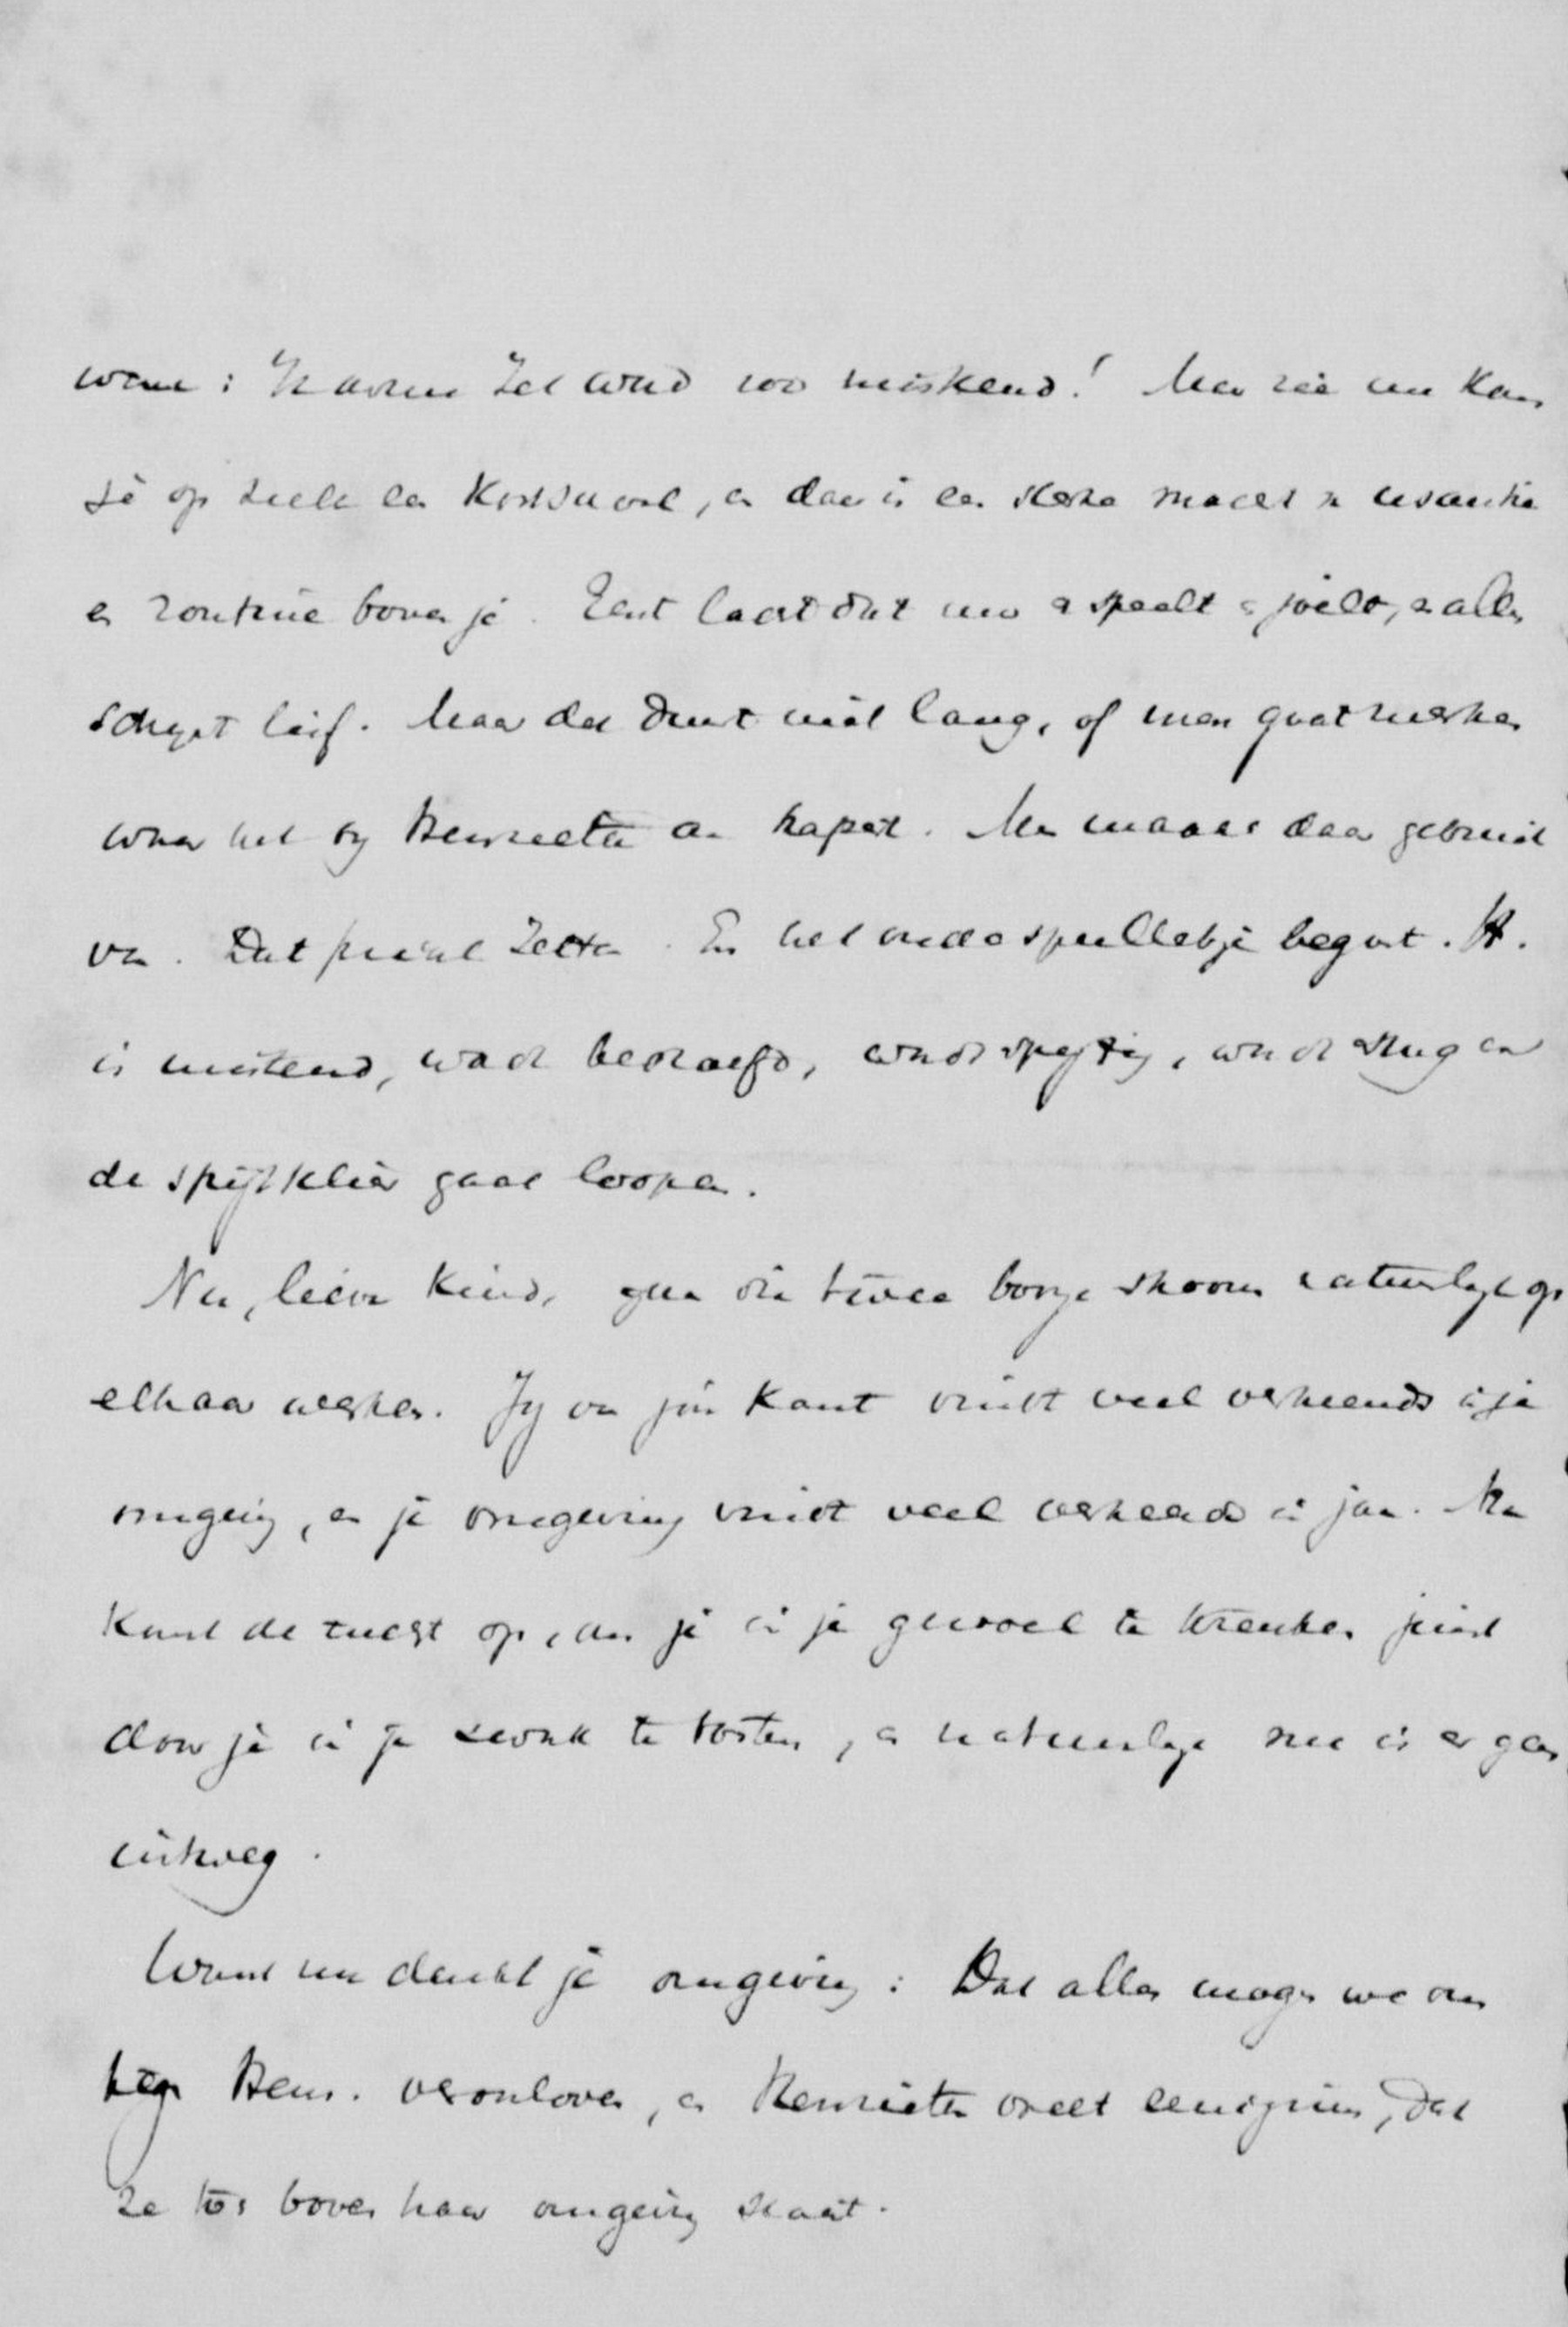 : wereld zoo miskend! Maar zie nu kom
je op zulk een kostschool, en daar is een sterke macht en usantie
en routine boven je. Eerst lacht dat nu en speelt en joelt, en alles
schynt lief. Maar dat duurt niet lang, of men gaat merken
waar het by Henriette aan hapert. Men maakt daar gebruik
van. Dat prikkelt Jetta. En het oude spulletje begint. H.
is miskend, wordt bedroefd, wordt spytig, wordt stug en
de spytklier gaat loopen.
Nu, lieve kind, gaan die twee booze stroomen natuurlyk op
elkaar werken. Jy van jou kant vindt veel verkeerds in je
omgeving, en je omgeving vindt veel verkeerds in jou. Men
komt de zucht op, om je in je gevoel te krenken juist
door je in je zwak te tasten, en natuurlyk nu is er geen
uitweg.
Want nu denkt je omgeving: Dat alles mogen we ons
tegen Henr. veroorloven, en Henriette voelt eenigszins, dat
ze toch boven haar omgeving staat.